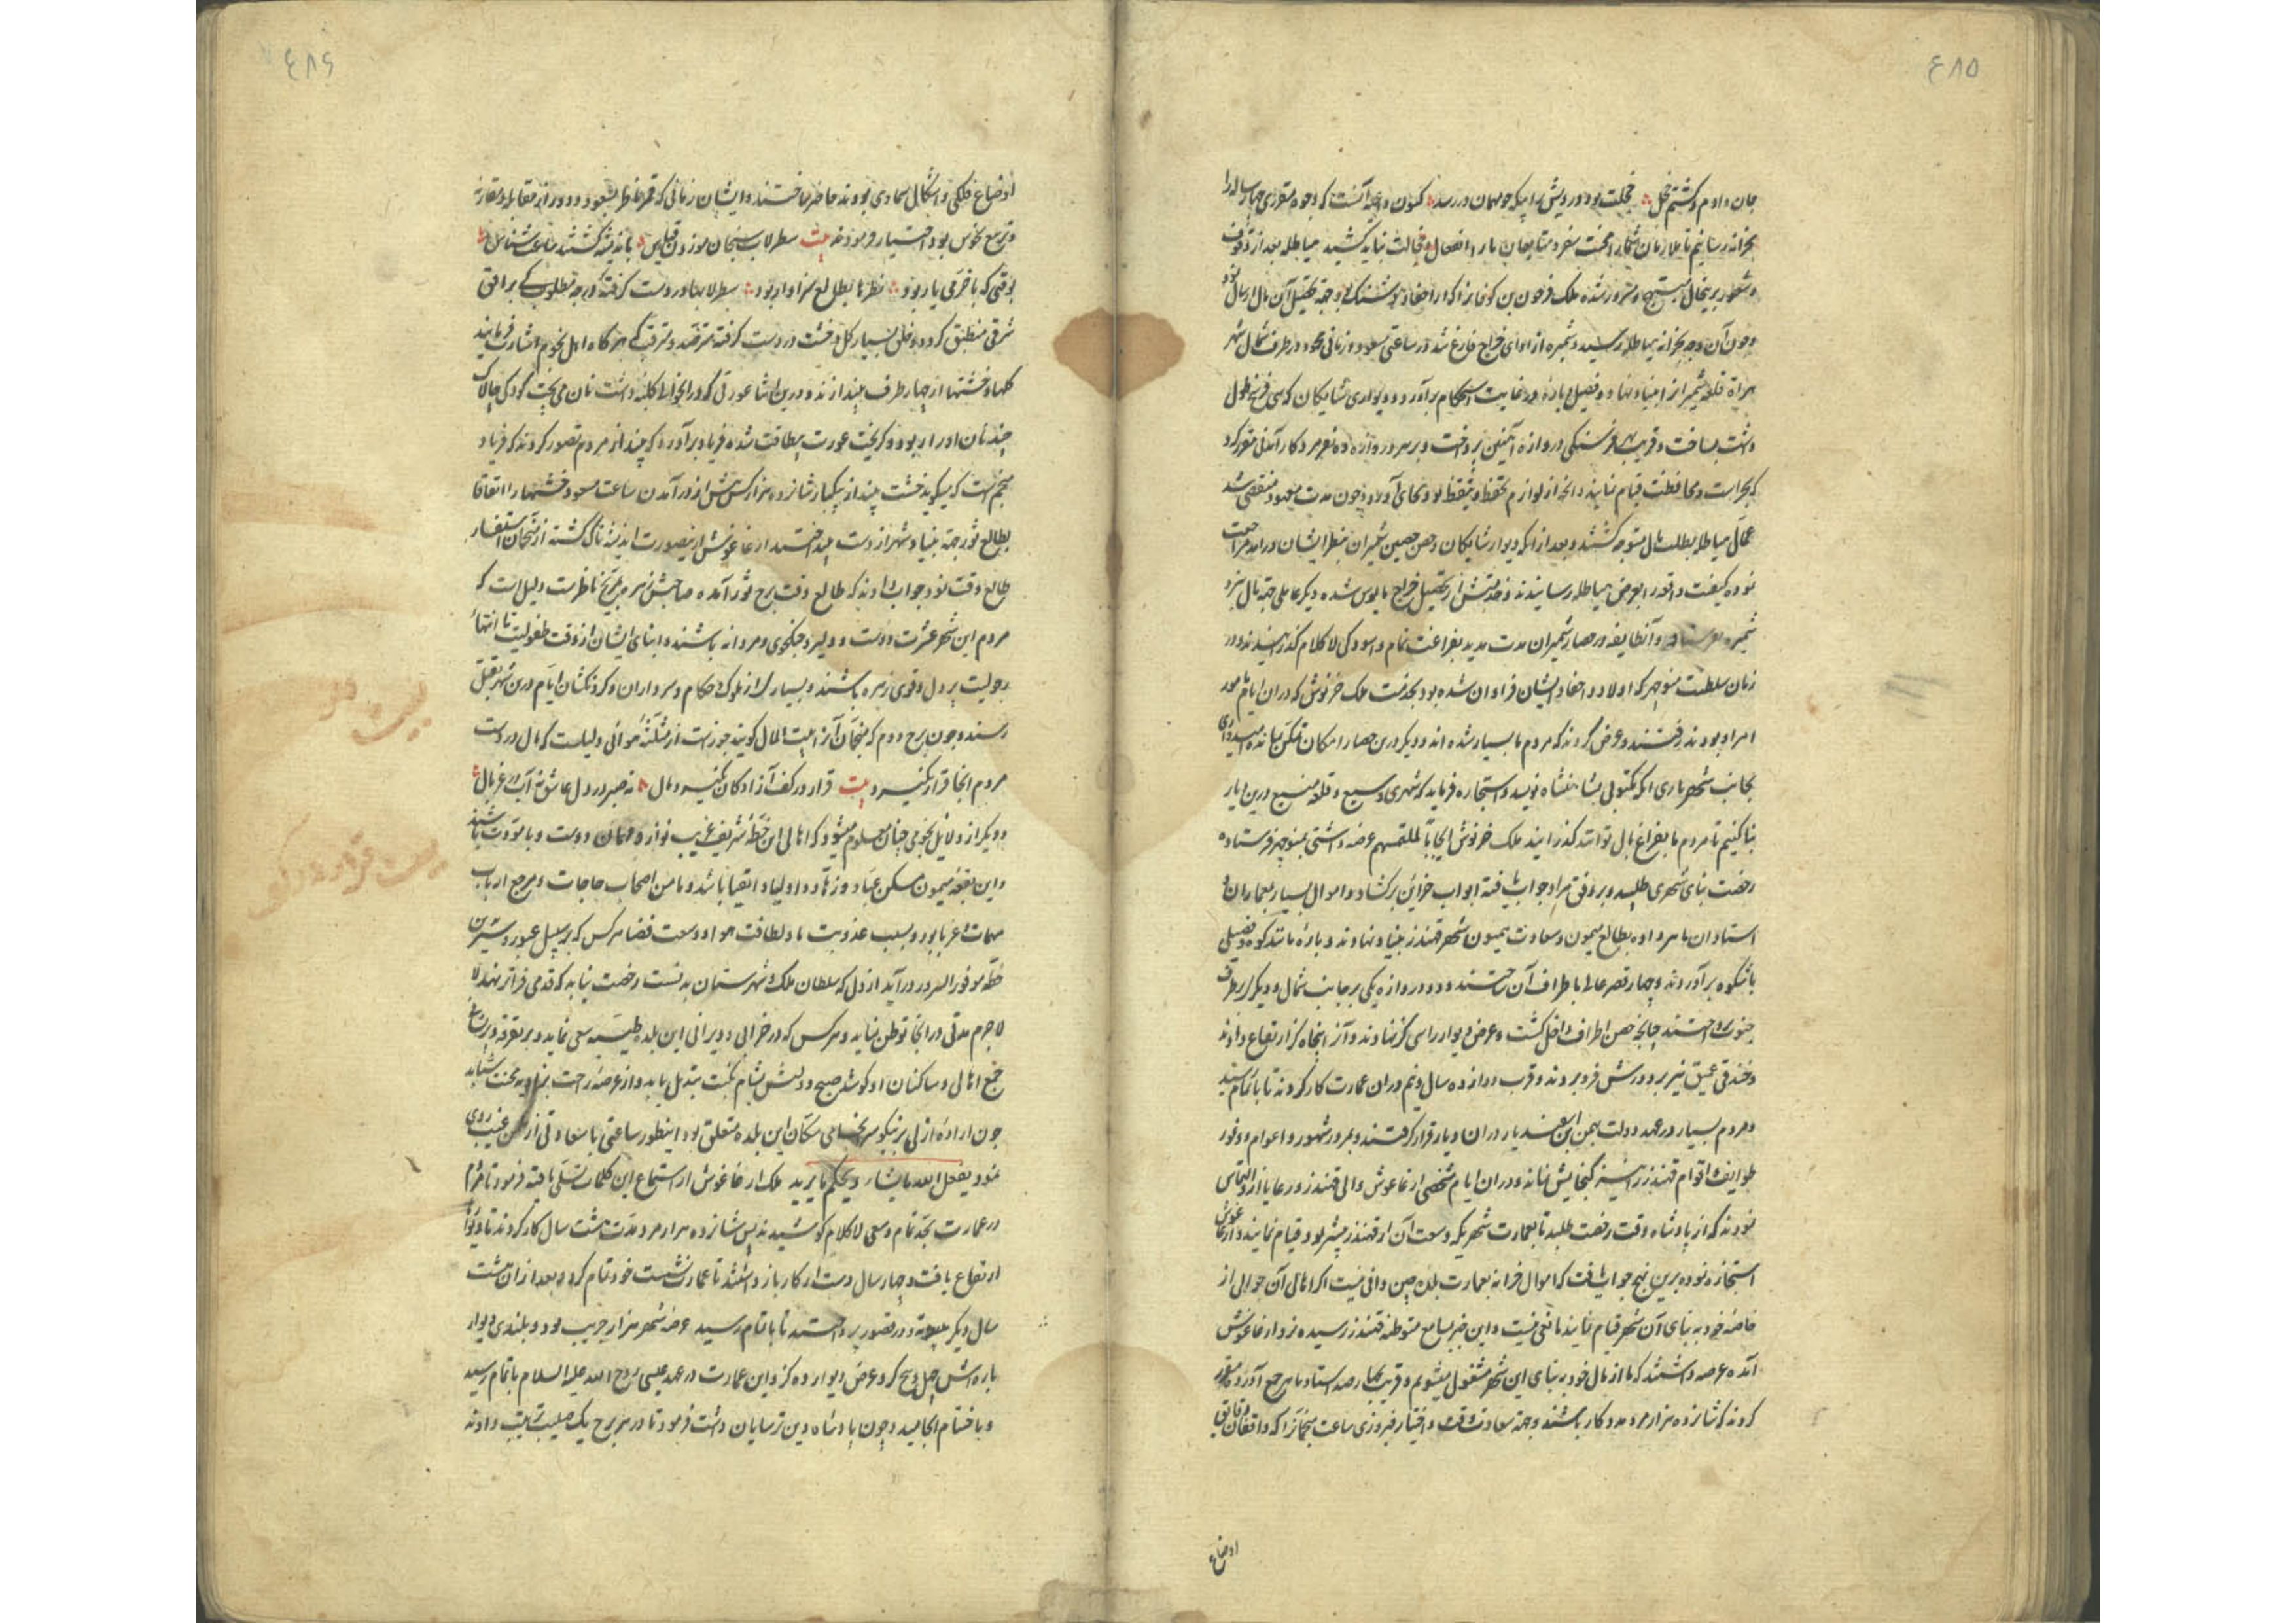 ٤٨٥
جان دادم و کشتم خجل خجلت بود درویش را بیکه چو مهمان در رسد کنون داعیه آنست که وجوه مقرری چهار ساله را
بخزانه رسانیم تا ملازمان شما را محنت سفر و متابعان ما را انفعال و خجالت نباید کشید هیاطله بعد از وقوف
و شعور برینحال مبتهج و مسرور شده ملک فرخون بن را از احفاد هوشنک بود جهة تحصیل آن مال ارسال نمود
و چون آن وجه بخزانه هیاطله رسید و شمیره از ادای خراج فارغ شد در ساعتی مسعود و زمانی محمود در طرف شمال شهر
هراة قلعه شمیران بنیاد نهاد و فصیل و باره در غایت استحکام برآورد و دیواری شایکان که سی فرسخ طول
داشت بساخت و قریب بهر فرسنکی دروازه آهنین پرداخت و بر سر هر دروازه ده نفر مرد کار آمدنی مقرر کرد
که بحراست و محافظت قیام نمایند و آنچه از لوازم تحفظ و تیقظ بود بجای آورد و چون مدت معهود منقضی شد
عمال هیاطله بطلب مال متوجه کشتند و بعد از آنکه دیوار شایکان و حصن حصین شمیران بنظر ایشان درآمد مراجعت
نموده کیفیت واقعه را بعرض هیاطله رسانیدند و خدمتش از تحصیل خراج مایوس شده دیکر عاملی جهة مال نزد
شمیره نفرستاد و آنطایفه در حصار شمیران مدت مدید بفراغت تمام و آسودکی لاکلام کذرانیدند و در
زمان سلطنت منوچهر که اولاد و احفاد ایشان فراوان شده بود بخدمت ملک خرنوش که دران ایام مامور
امر او بودند رفتند و عرض کردند که مردم ما بسیار شده اند و دیکر درین حصار امکان تمکن نمانده امیدواری
بجانب شهریاری آنکه مکتوبی بشاهنشاه نویسد و استجازه فرماید که شهری وسیع و قلعه منیع درین دیار
بنا کنیم تا مردم ما بفراغ بال توانند کذرانید ملک خرنوش ایجابا لملتمسهم عرضه داشتی بمنوچهر فرستاده
رخصت بنای شهری طلبید و بر وفق مراد جواب یافته ابواب خزاین برکشاد و اموال بسیار بمعماران و
استادان ماهر داده بطالع میمون و سعادت همیون شهر قهندز بنیاد نهادند و باره مانند کوه و فصیلی
باشکوه برآوردند و چهار قصر عالی باطراف آن ساختند و دو دروازه یکی بر جانب شمال و دیکری بر طرف
جنوب ساختند چنانچه حصن اطراف داخل کشت و عرض دیوار را سی کز نهادند و آنرا پنجاه کز ارتفاع دادند
و خندقی عمیق نیز بر دورش فرو بردند و قرب دوازده سال و نیم دران عمارت کار کردند تا باتمام رسید
و مردم بسیار در عهد دولت بهمن بن اسفندیار دران دیار قرار کرفتند و بمرور شهور و اعوام و وفور
طوایف و اقوام قهندز را نیز کنجایش نمانده و دران ایام شخصی ارغاغوش والی قهندز و رعایا ازو التماس
نمودند که از پادشاه وقت رخصت طلبد تا بعمارت شهریکه وسعت آن از قهندز بیشتر بود قیام نمایند و ارغاغوش
استجازه نموده برین نهج جواب یافت که اموال خزانه بعمارت بلدان چین وافی نیست اکر اهالی آن حوالی از
خاصه خود به بنای آن شهر قیام نمایند مانعی نیست و این خبر بمسامع متوطنه قهندز رسیده نزد ارغاغوش
آمده عرضه داشتند که ما از مال خود به بنای این شهر مشغول میشویم و قریب بچهار صد استاد ماهر جمع آورده مقرر
کردند که شانزده هزار مرد مددکار باشند و جهة سعادت وقت و اختیار فیروزی ساعت منجمانرا که واقفان دقایق
اوضاع
٤٨٦
اوضاع فلکی و اشکال سماوی بودند حاضر ساختند و ایشان زمانی که قمر ناظر بسعود و دور از مقابله و مقارنه
و تربیع نحوس بود اختیار فرمودند بیت سطرلاب سنجان موزون قیاس باندیشه کشتند ساعت شناس
بوقتی که با خرمی یار بود نظرها بطالع سزاوار بود سطرلابها در دست کرفته درجه مطلوب که بر افق
شرقی منطبق کردد و خلق بسیار کل و خشت در دست کرفته مترصد و مترقب که هر کاه اهل نجوم اشارت فرمایند
کلها و خشتها از چهار طرف بیندازند و درین اثنا عورتی که در انحوالی کلبه داشت نان می پخت کودکی چالاک
چند نان او را ربود و کریخت عورت بیطاقت شده فریاد برآورد که بینداز مردم تصور کردند که فریاد
منجم است که میکوید خشت بینداز بیکبار شانزده هزار کس پیش از درآمدن ساعت مسعود خشتها را اتفاقا
بطالع ثور جهة بنیاد شهر از دست بینداختند ارغاغوش ازینصورت اندیشه ناک کشته از منجمان استفسار
طالع وقت نمود جواب دادند که طالع وقت برج ثور آمده صاحبش زهره بمریخ ناظرست دلیل است که
مردم این شهر عشرت دوست و دلیر و جنکجوی و مردانه باشند و ابنای ایشان از وقت طفولیت تا انتهاء
رجولیت پر دل و قوی زهره باشند و بسیاری از ملوک و حکام و سرداران و کردنکشان ایام درین شهر بقتل
رسند و چون برج دوم که منجمان آنرا بیت المال کویند جوزاست از مثلثه هوائی دلیلست که مال در دست
مردم آنجا قرار نکیرد بیت قرار در کف آزادکان نکیرد مال نه صبر در دل عاشق نه آب در غربال
و دیکر از دلایل نجومی چنان معلوم میشود که اهالی این خطه شریف غریب نواز و مهمان دوست و با مودت باشند
و این بقعه میمون مسکن عباد و زهاد و اولیا و اتقیا باشد و مامن اصحاب حاجات و مرجع ارباب
مهمات و غربا بود و بسبب عذوبت ماء و لطافت هوا و وسعت فضا هرکس که بر سبیل عبور درین
خطه موفور السرور درآید از دل که سلطان ملک شهرستان بدنست رخصت نیابد که قدمی فراتر نهد لا
لاجرم مدتی در انجا توطن نماید و هرکس که در خرابی و ویرانی این بلده طیبه سعی نماید و بر تفرقه و پریشانی
جمع اهالی و ساکنان او کوشد صبح دولتش بشام نکبت تبدیل یابد و از عرصه راحت بزاویه محنت شتابد
چون اراده ازلی بر نیکو سرانجامی سکان این بلده متعلق بود اینطور ساعتی با سعادتی از مکمن غیب روی
نمود یفعل الله ما یشاء و یحکم ما یرید ملک ارغاغوش از استماع این کلمات تسلی یافته فرمود تا مردم
در عمارت بجد تمام و سعی لاکلام کوشیدند پس شانزده هزار مرد مدت هشت سال کار کردند تا دیوار
ارتفاع یافت و چهار سال دست از کار باز داشتند تا عمارت نشست خود تمام کرد و بعد از ان هشت
سال دیکر در قصور پرداختند تا باتمام رسید عرصه شهر هزار جریب بود و بلندی دیوار
باره اش چهل و پنج کز و عرض دیوار ده کز و این عمارت در عهد عیسی روح الله علیه السلام باتمام رسید
و باختتام انجامید و چون پادشاه دین ترسایان داشت فرمود تا در هر برج یک صلیب ترتیب دادند